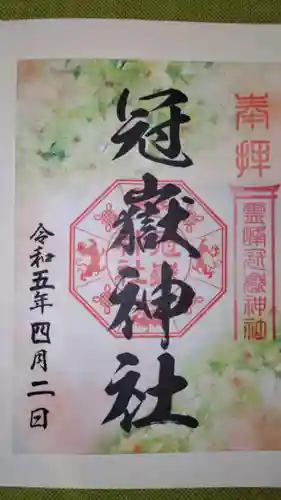 奉拝
霊峰冠嶽神社
冠嶽神社
令和五年四月二日